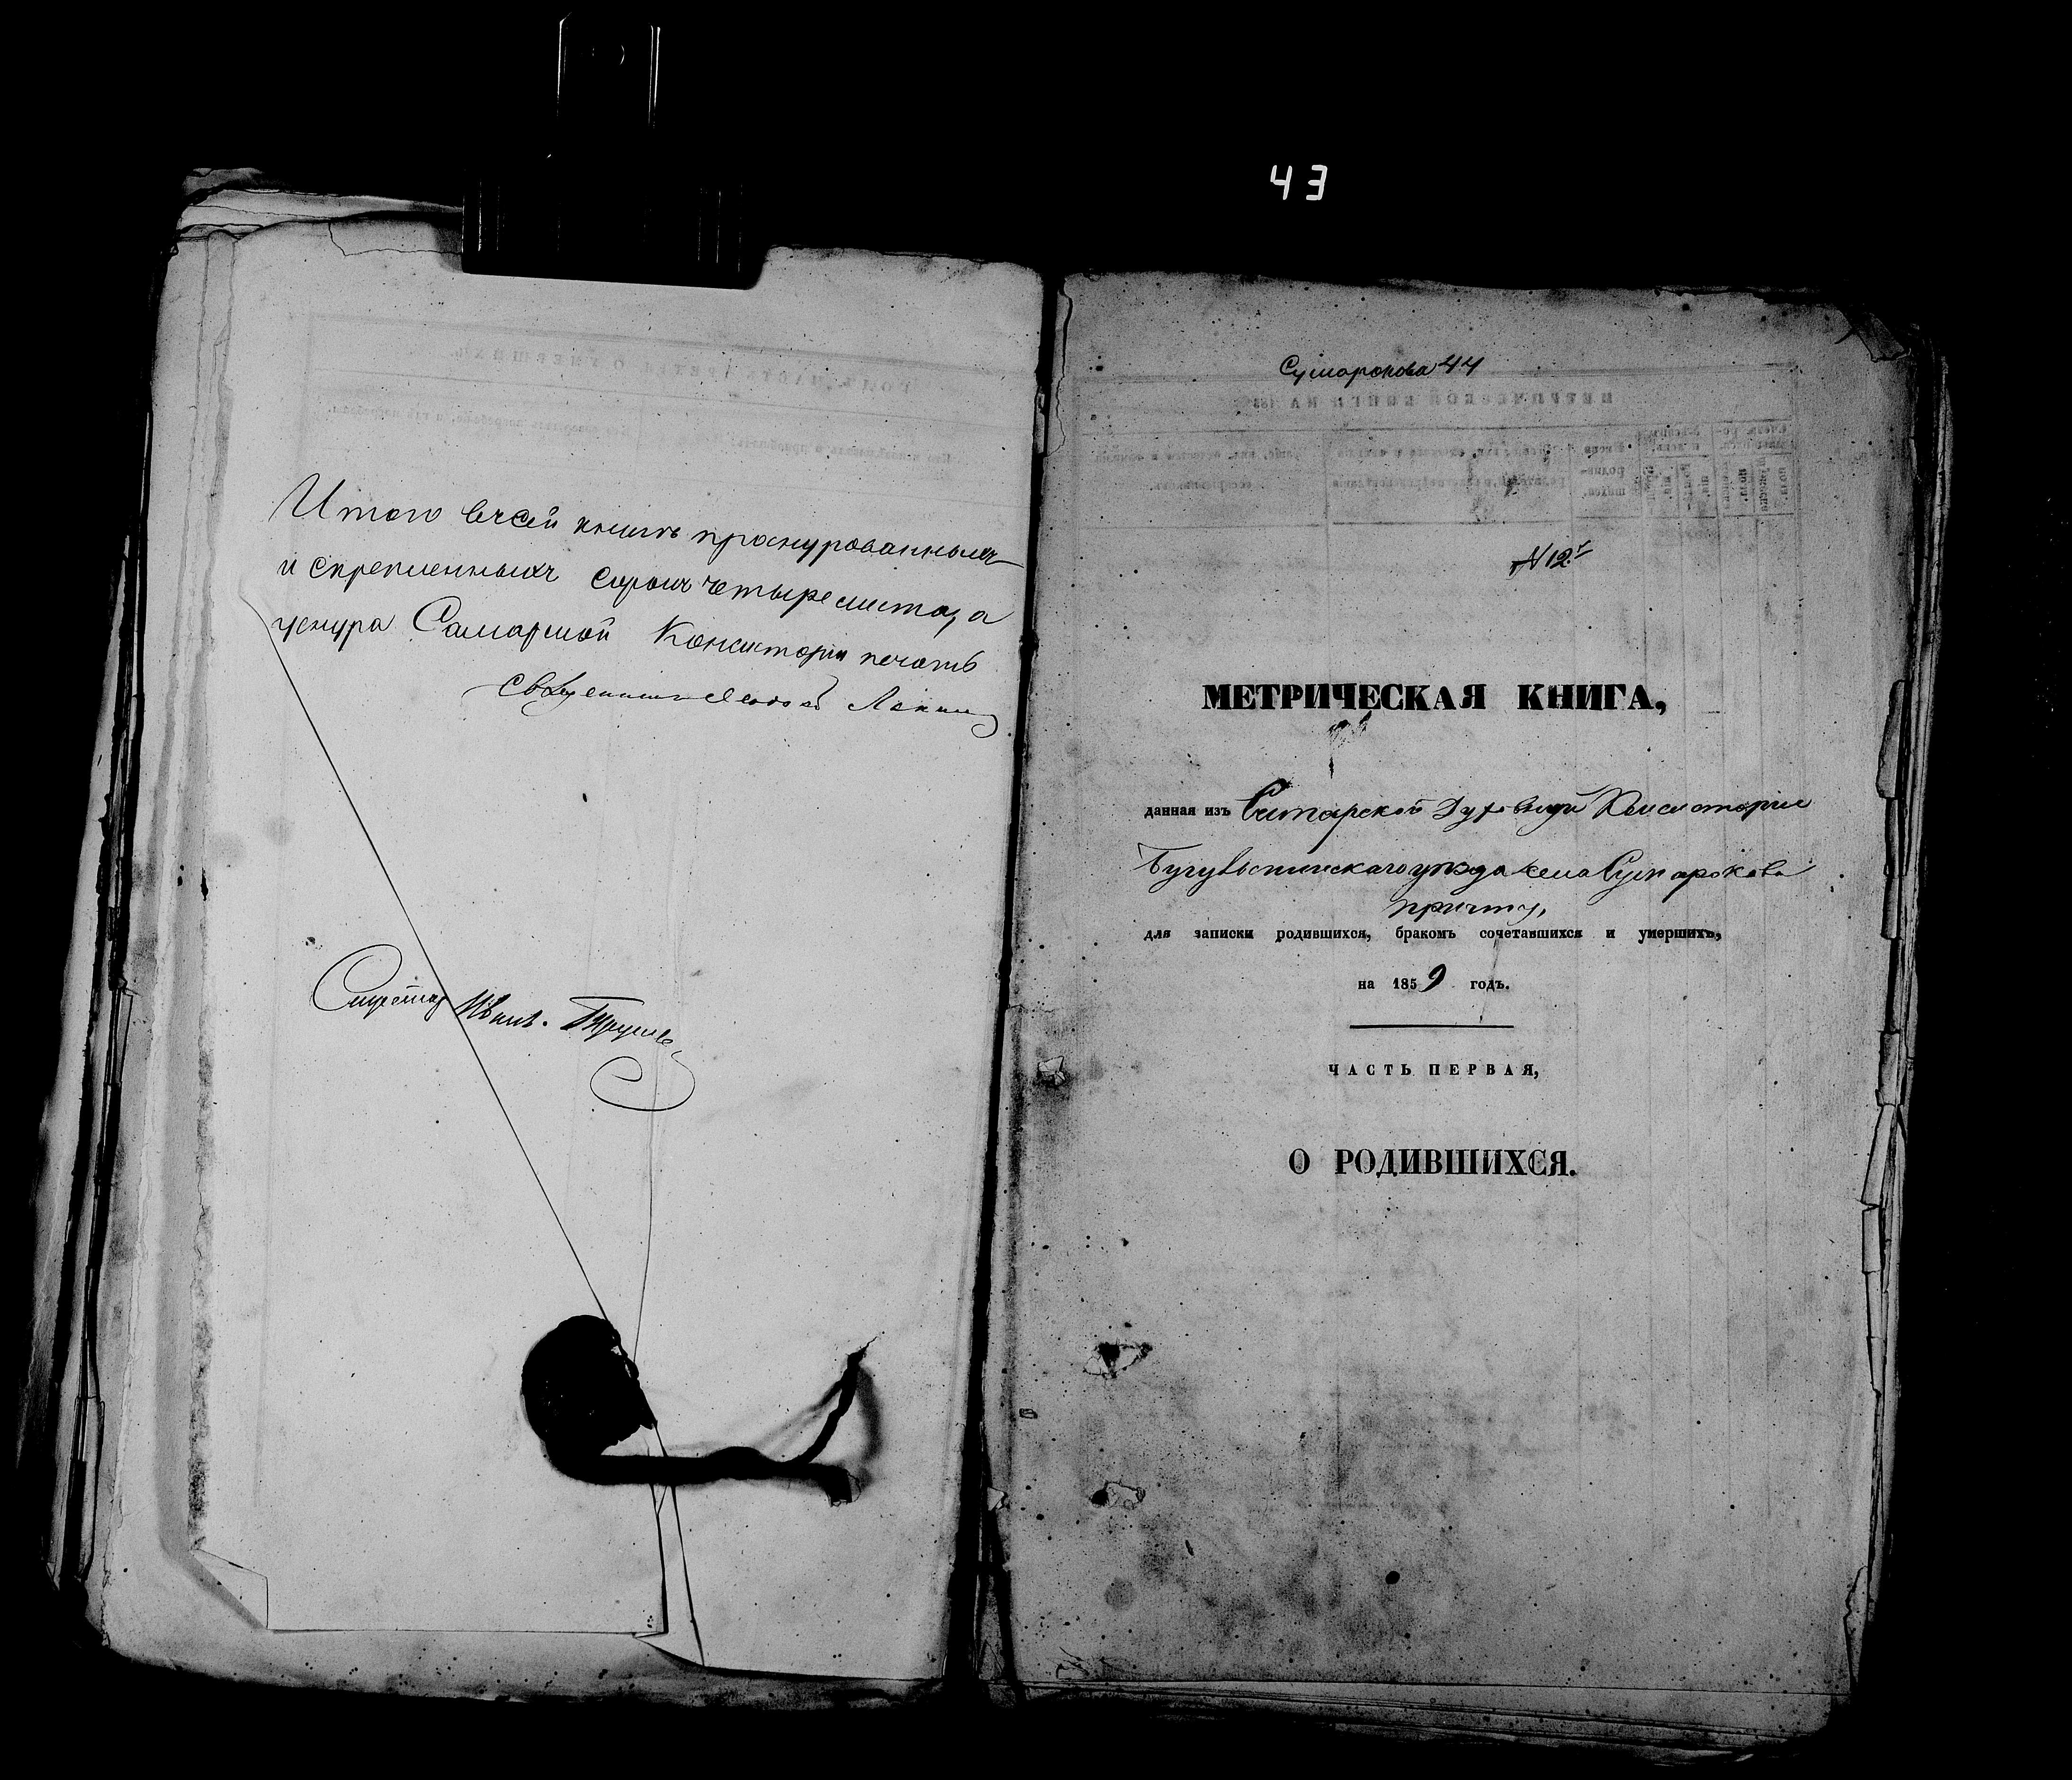 43
Итого всей книгѣ прошнурованныхъ
и скрепленныхъ сорокъ четыре листа, а
уснура Самарской Консисторіи печать
Священникъ
Секретарь Иванъ
Сумарокова 44
№ 12
МЕТРИЧЕСКАЯ КНИГА,
данная изъ Самарской Духовной Консисторіи
Бугульминскаго уѣзда села Сумарокова
причту,
для записки родившихся, бракомъ сочетавшихся и умершихъ,
на 1859 годъ.
ЧАСТЬ ПЕРВАЯ,
О РОДИВШИХСЯ.